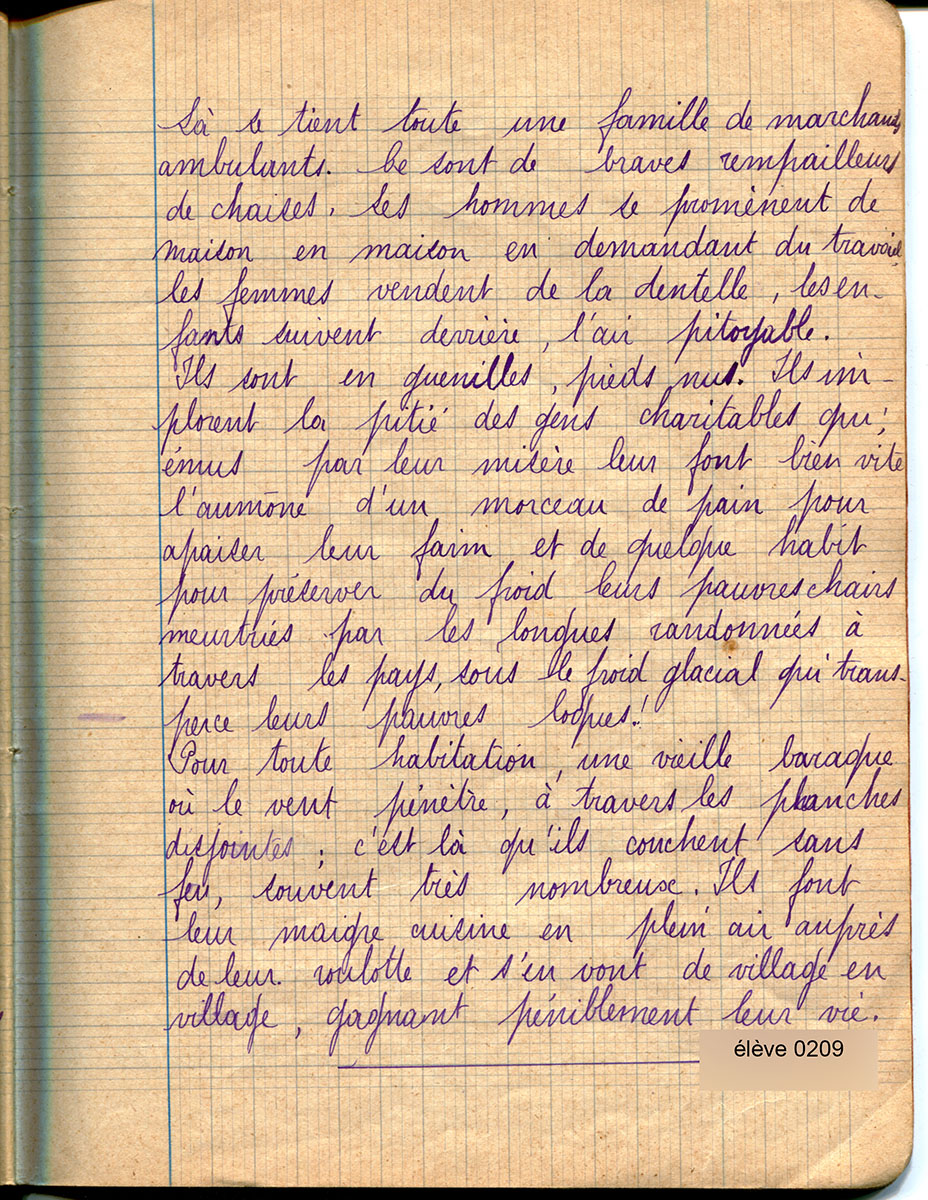 Là se tient toute une famille de marchands
ambulants. Ce sont de braves rempailleurs
de chaises. Les hommes se promènent de
maison en maison en demandant du travail,
les femmes vendent de la dentelle, les en-
fants suivent derrière, l'air pitoyable.
Ils sont en guenilles, pieds nus. Ils im-
plorent la pitié des gens charitables qui,
émus par leur misère leur font bien vite
l'aumône d'un morceau de pain pour
apaiser leur faim et de quelque habit
pour préserver du froid leurs pauvres chairs
meurtries par les longues randonnées à
travers les pays, sous le froid glacial qui trans-
perce leurs pauvres loques.!
Pour toute habitation, une vieille baraque
où le vent pénètre, à travers les planches
disjointes ; c'est là qu'ils couchent sans
feu, souvent très nombreux. Ils font
leur maigre cuisine en plein air auprès
de leur roulotte et s'en vont de village en
village, gagnant péniblement leur vie.
élève 0209